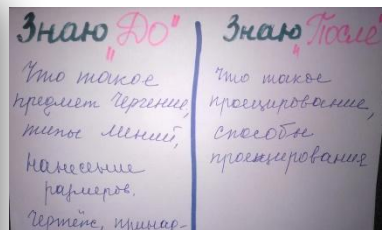 Знаю "До"
Что такое
предмет Черчение,
типы линий,
нанесение
размеров.
Чертёж, принад-
Знаю "После"
Что такое
проецирование,
способы
проецирования